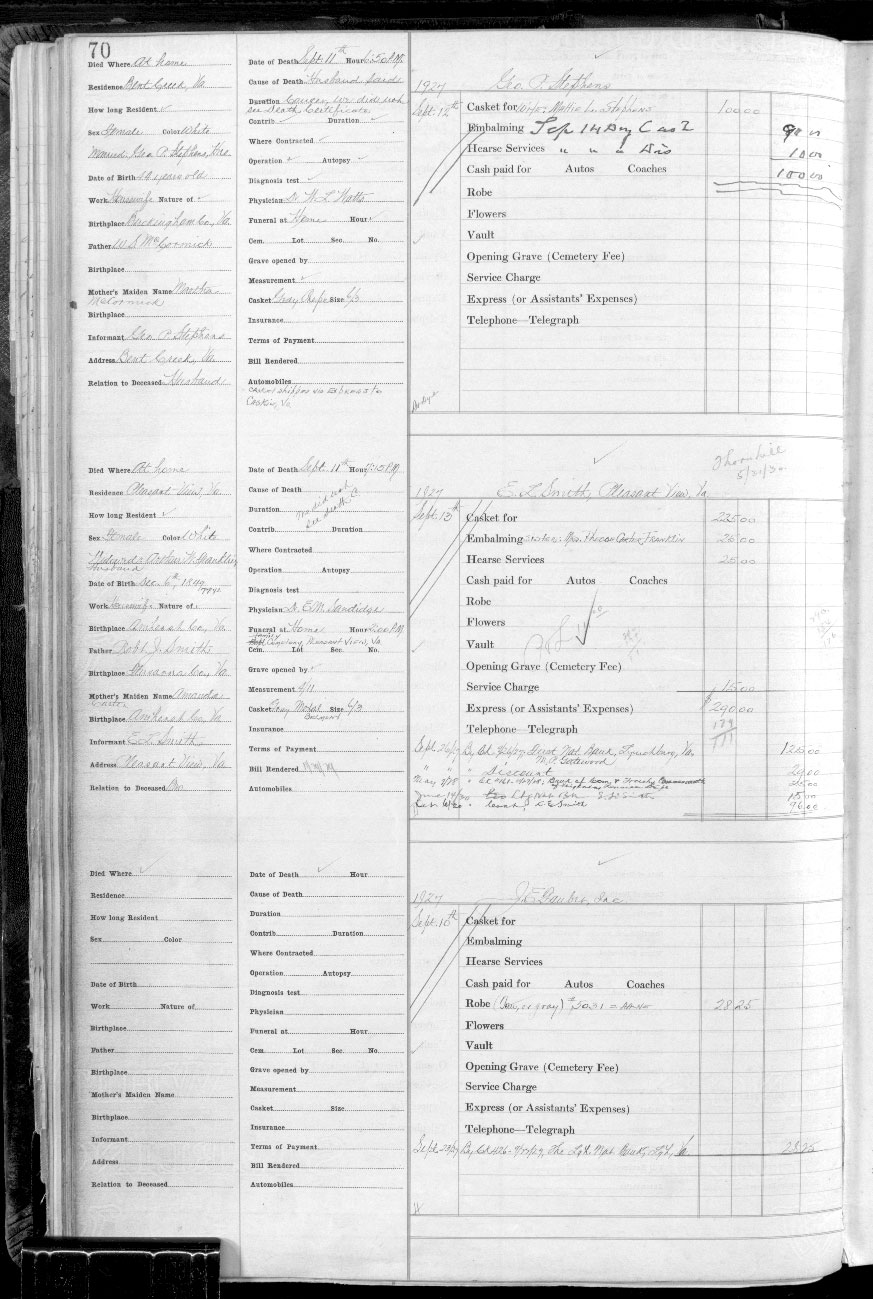 70
Died Where At home
Residence Bent Creek, Va.
How long Resident ✓
Sex Female Color White
Married, Geo. P. Stephens,
Date of Birth years old
Work Housewife Nature of ✓
Birthplace Buckingham Co., Va.
Father W. S. McCormick
Birthplace
Mother's Maiden Name Martha
McCormick
Birthplace
Informant Geo. P. Stephens
Address Bent Creek, Va.
Relation to Deceased Husband
Date of Death Sept. 11th Hour P.M.
Cause of Death Husband said
Duration Cancer, we did not
see Death Certificate
Contrib ✓ Duration ✓
Where Contracted ✓
Operation ✓ Autopsy ✓
Diagnosis test ✓
Physician Dr. W. L. Watts
Funeral at Home Hour ✓
Cem. Lot Sec. No.
Grave opened by
Measurement ✓
Casket Gray Size 6/3
Insurance
Terms of Payment
Bill Rendered
Automobiles
Casket shipped via Express to
Va.
1927 Geo. P. Stephens
Sept. 12th Casket for Wife, Mattie L. Stephens 100 00
Embalming Sep 14 By Cash 90 00
Hearse Services " " " Dis 10 00
Cash paid for Autos Coaches 100 00
Robe
Flowers
Vault
Opening Grave (Cemetery Fee)
Service Charge
Express (or Assistants' Expenses)
Telephone—Telegraph
Died Where At home
Residence Pleasant View, Va.
How long Resident ✓
Sex Female Color White
Arthur W. Franklin
Husband
Date of Birth Dec. 6th, 1849
Work Housewife Nature of
Birthplace Amherst Co., Va.
Father Robt. J. Smith
Birthplace Fluvanna Co., Va.
Mother's Maiden Name Amanda
Carter
Birthplace Amherst Co. Va.
Informant E. L. Smith
Address Pleasant View, Va.
Relation to Deceased Bro.
Date of Death Sept. 11th Hour P.M.
Cause of Death
Duration we did not
see death C.
Contrib. Duration
Where Contracted
Operation Autopsy
Diagnosis test
Physician Dr. E. M. Sandidge
Funeral at Home Hour 2:00 P.M.
Family Cemetery Pleasant View, Va.
Cem. Lot Sec. No.
Grave opened by ✓
Measurement 5/11
Casket Gray Metal Size 6/3
Insurance
Terms of Payment
Bill Rendered
Automobiles
Thornhill
5/21/30
1927 E. L. Smith, Pleasant View, Va.
Sept. 13th Casket for 225 00
Embalming sister, Mrs. Carter Franklin 25 00
Hearse Services 25 00
Cash paid for Autos Coaches
Robe
Flowers
Vault
Opening Grave (Cemetery Fee)
Service Charge 15 00
Express (or Assistants' Expenses) $290 00
Telephone—Telegraph
Sept. 26/27 By Ck. First Nat. Bank, Lynchburg, Va. 125 00
W. A. Gatewood
" " " Discount 29 00
May 25 00
June 15 00
E. L. Smith 96 00
Died Where ✓
Residence
How long Resident
Sex Color
Date of Birth
Work Nature of
Birthplace
Father
Birthplace
Mother's Maiden Name
Birthplace
Informant
Address
Relation to Deceased
Date of Death ✓ Hour
Cause of Death
Duration
Contrib. Duration
Where Contracted
Operation Autopsy
Diagnosis test
Physician
Funeral at Hour
Cem. Lot Sec. No.
Grave opened by
Measurement
Casket Size
Insurance
Terms of Payment
Bill Rendered
Automobiles
1927 Inc.
Sept. 10th Casket for
Embalming
Hearse Services
Cash paid for Autos Coaches
Robe 28 25
Flowers
Vault
Opening Grave (Cemetery Fee)
Service Charge
Express (or Assistants' Expenses)
Telephone—Telegraph
Sept. 29/27 By Ck. The Nat. Bank, Va. 28 25